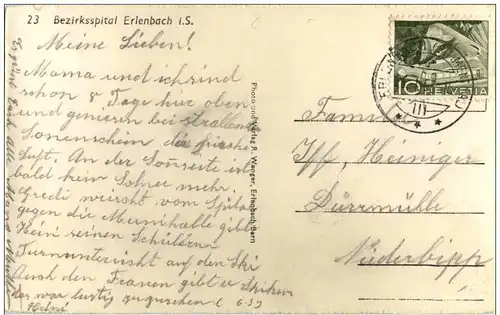 23 Bezirksspital Erlenbach i.S.
Meine Lieben!
Mama und ich sind
schon 8 Tage hier oben
und geniessen bei strallend
Sonenschein die frische
Luft. An der Sonseite ist
bald kein Schne mehr.
Gredi wünscht vom Spital
gegen die Meumihalle gibt
Heini seinen Schülern
Turnunterricht auf den Ski
Auch den Frauen gibt er Skikurs
war lustig zuzusehen
Heini
Es grüsst Euch alle Mama
Photo und Verlag A. Wenger, Erlenbach/Bern
10 HELVETIA
III
Familie
Iff, Heiniger
Dürrmühle
Niederbipp